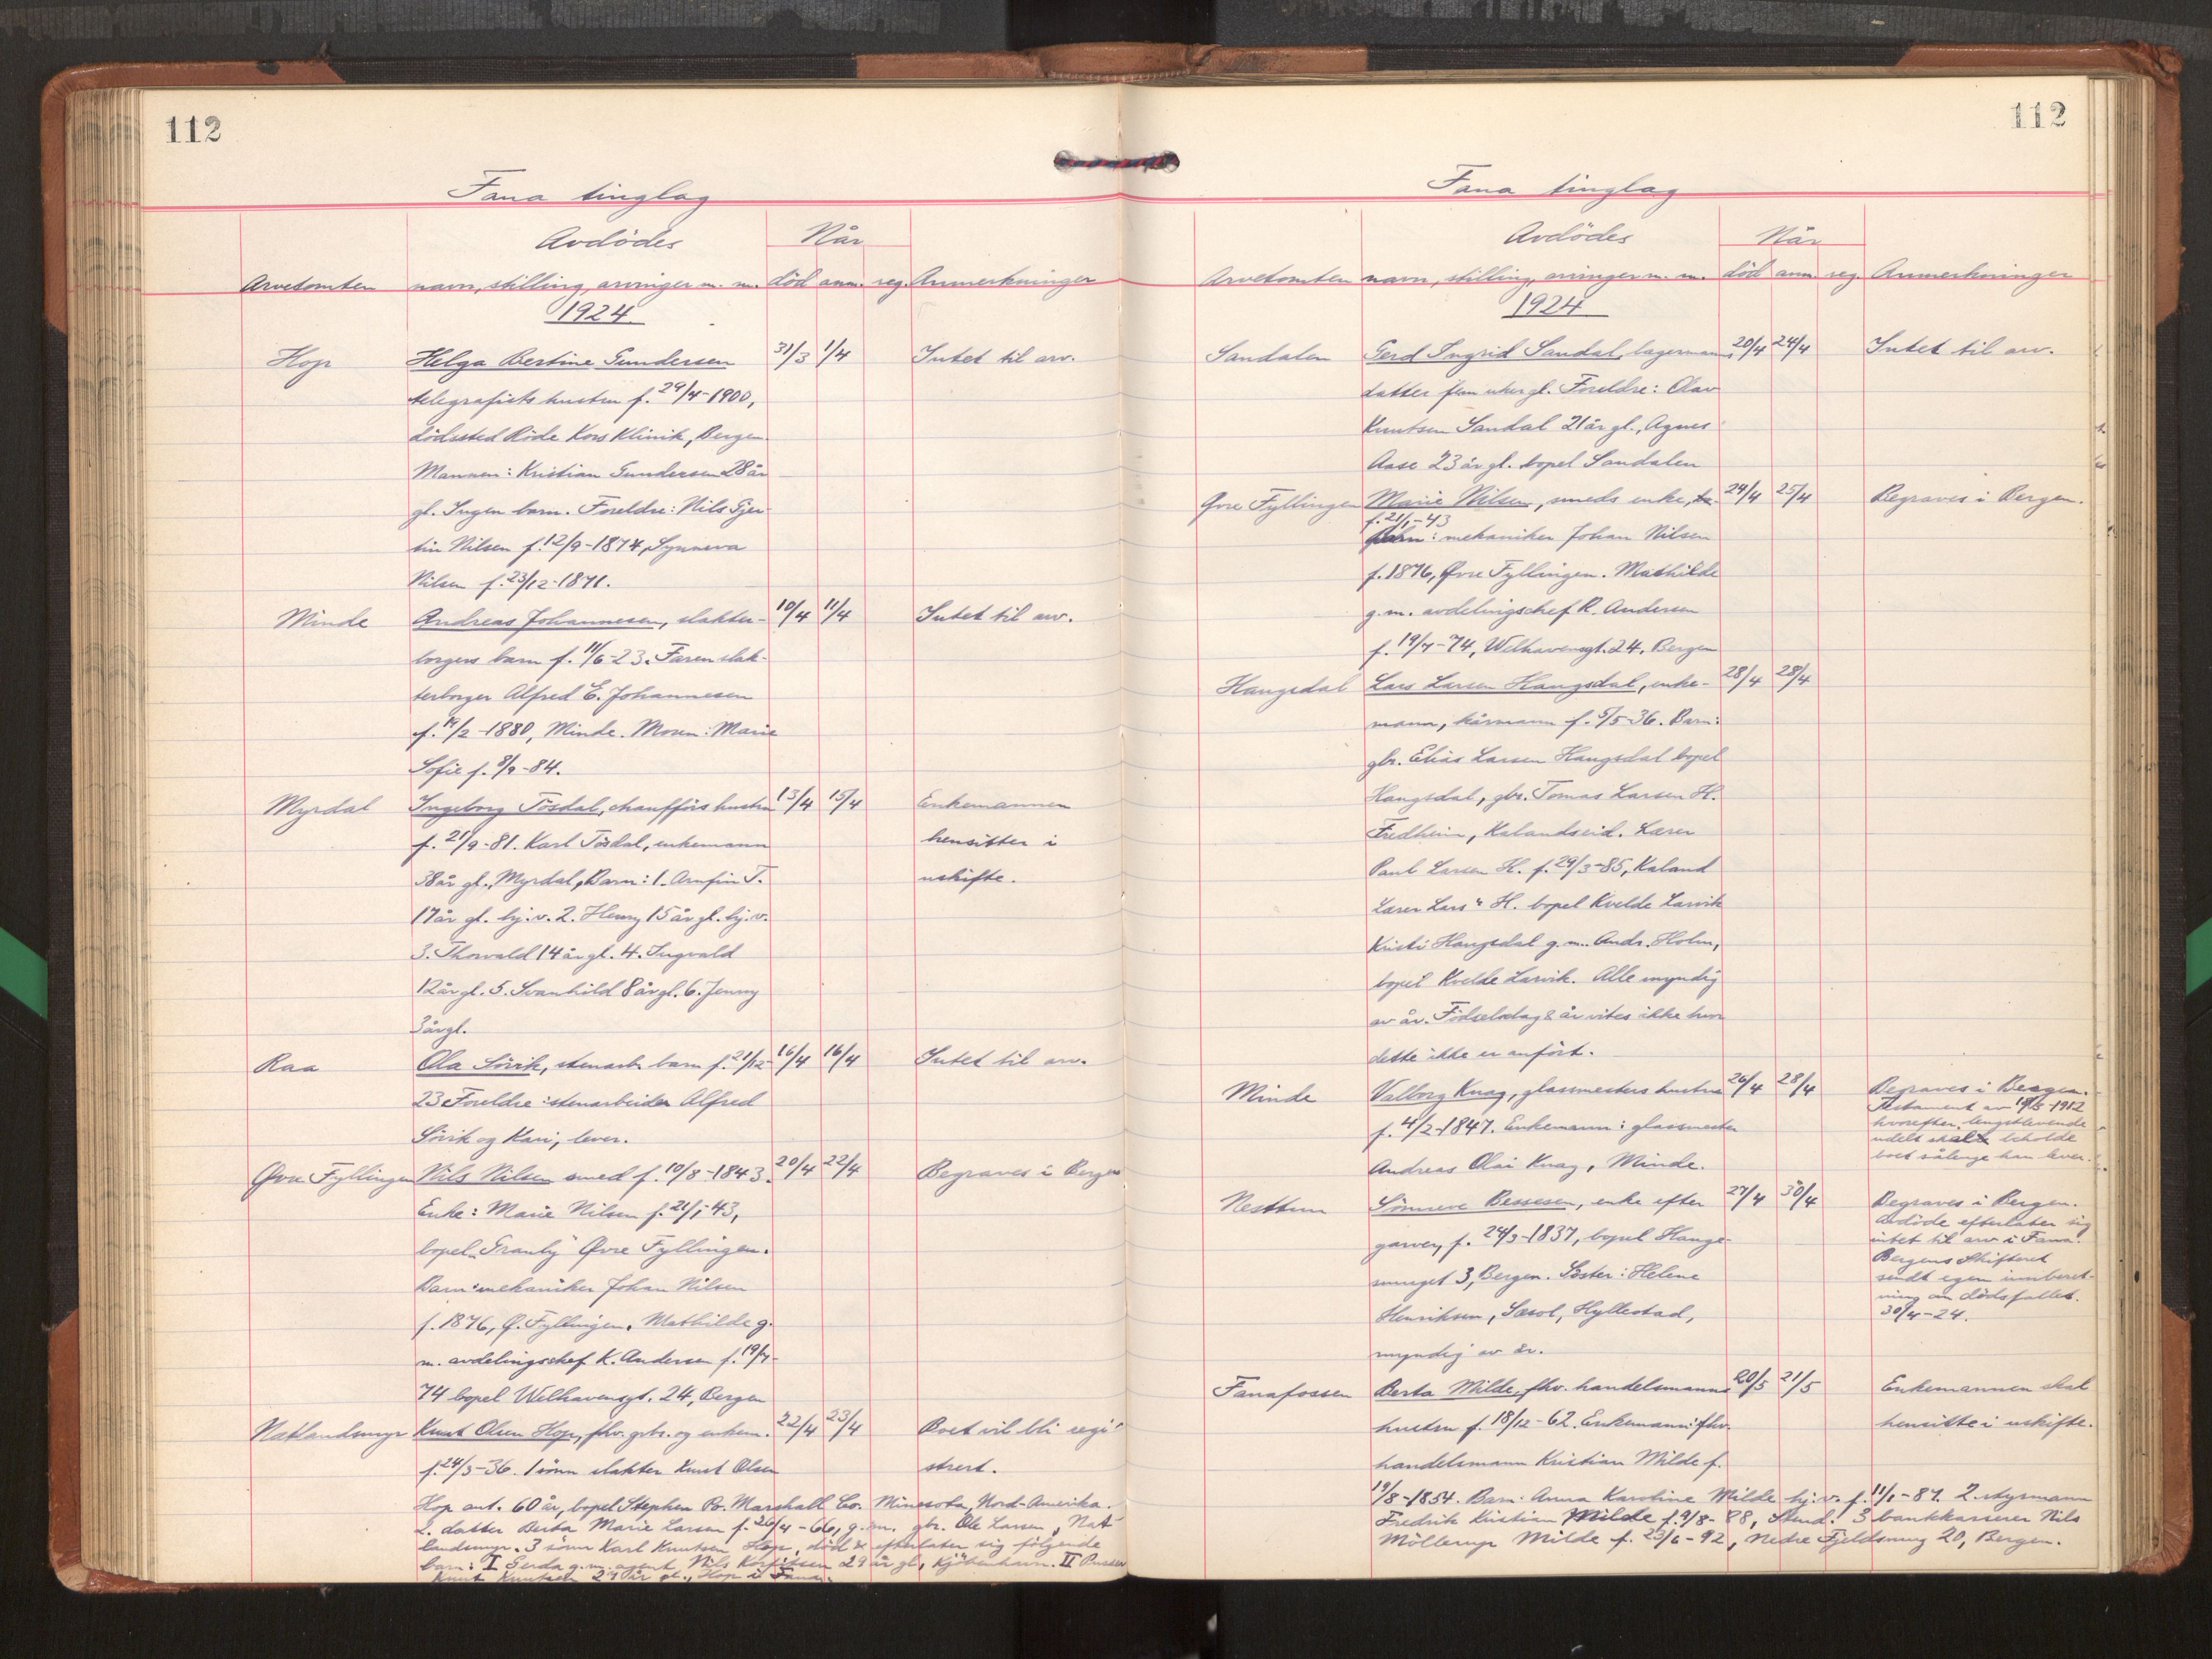 112
Fana tinglag
Avdödes
Når
Arvetomten navn, stilling, arvinger m. m. död anm. reg. Anmerkninger
1924
Hop Helga Bertine Gundersen 31/3 1/4 Intet til arv.
telegrafists hustru f. 29/4-1900,
dödssted Röde Kors Klinik, Bergen.
Mannen: Kristian Gundersen 28 år
gl. Ingen barn. Foreldre: Nils Gjer-
tin Nilsen f. 12/9-1874, Synneva
Nilsen f. 23/12-1871.
Minde Andreas Johannesen, slakter- 10/4 11/4 Intet til arv.
borgers barn f. 11/6-23. Faren slak-
terborger Alfred E. Johannesen
f. 19/2-1880, Minde. Moren: Marie
Sofie f. 8/9-84.
Myrdal Ingeborg Tösdal, chaufförs hustru 13/4 15/4 Enkemannen
f. 21/9-81. Karl Tösdal, enkemann hensitter i
38 år gl., Myrdal, Barn: 1. Arnfin T. uskifte.
17 år gl. hj. v. 2. Henry 15 år gl. hj. v.
3. Thorvald 14 år gl. 4. Ingvald
12 år gl. 5. Svanhild 8 år gl. 6. Jenny
3 år gl.
Raa Ola Sörik, stenarb. barn f. 21/12- 16/4 16/4 Intet til arv.
23 Foreldre: stenarbeider Alfred
Sörik og Kari, lever.
Øvre Fyllingen Nils Nilsen smed f. 10/8-1843. 20/4 22/4 Begraves i Bergen
Enke: Marie Nilsen f. 21/1-43,
bopel "Granly" Øvre Fyllingen.
Barn: mekaniker Johan Nilsen
f. 1876, Ø. Fyllingen. Mathilde g.
m. avdelingschef K. Andersen f. 19/7-
74 bopel Welhavensgt. 24, Bergen
Natlandsmyr Knut Olsen Hop, fhv. gbr. og enkem. 22/4 23/4 Boet vil bli regi-
f. 24/3-36. 1 sönn slakter Knut Olsen strert.
Hop ant. 60 år, bopel Stephen Po. Marshall Co. Minesota, Nord-Amerika.
2. datter Berta Marie Larsen f. 26/4-66, g. m. gbr. Ole Larsen, Nat-
landsmyr. 3 sönn Karl Knutsen Hop, död & efterlater sig fölgende
barn: I Gerda g. m. agent Nils Korfitsen 29 år gl., Kjöbenhavn. II
Knut Knutsen 27 år gl., Hop i Fana.
112
Fana tinglag
Avdödes
Når
Arvetomten navn, stilling, arvinger m. m. död anm. reg. Anmerkninger
1924
Sandalen Gerd Ingrid Sandal, lagermanns 20/4 24/4 Intet til arv.
datter fem uker gl. Foreldre: Olav
Knutsen Sandal 21 år gl., Agnes
Aase 23 år gl. bopel Sandalen
Øvre Fyllingen Marie Nilsen, smeds enke, 24/4 25/4 Begraves i Bergen.
f. 21/1-43
Barn: mekaniker Johan Nilsen
f. 1876, Øvre Fyllingen. Mathilde
g. m. avdelingschef K. Andersen
f. 19/7-74, Welhavensgt. 24, Bergen
Haugsdal Lars Larsen Haugsdal, enke- 28/4 28/4
mann, kårmann f. 5/5-36. Barn:
gbr. Elias Larsen Haugsdal bopel
Haugsdal, gbr. Tomas Larsen H.
Fredheim, Kalandseid. Lærer
Paul Larsen H. f. 29/3-85, Kaland
Lærer Lars " H. bopel Kvelde Larvik
Kristi Haugsdal g. m. Andr. Holm,
bopel Kvelde Larvik. Alle myndig
av år. Födselsdag & år vites ikke hvor
dette ikke er anfört.
Minde Valborg Knag, glassmesters hustru 26/4 28/4 Begraves i Bergen.
Testament av 14/5-1912
f. 4/2-1847. Enkemann: glassmester hvorefter lengstlevende
udelt skal beholde
Andreas Olai Knag, Minde. boet sålenge han lever.
Nesttun Sönneve Bessesen, enke efter 27/4 30/4 Begraves i Bergen.
Avdöde efterlater sig
garver, f. 24/3-1837, bopel Hauge- intet til arv i Fana.
Bergens Skifteret
smuget 3, Bergen. Söster: Helene sendt egen innberet-
ning om dödsfallet.
Henriksen, Sæsol, Hyllestad, 30/4-24.
myndig av år.
Fanafossen Berta Milde, fhv. handelsmanns 20/5 21/5 Enkemannen skal
hustru f. 18/12-62. Enkemann: fhv. hensitte i uskifte.
handelsmann Kristian Milde f.
19/8-1854. Barn: Anna Karoline Milde hj. v. f. 11/1-87. 2. styrmann
Fredrik Kristian Milde f. 9/8-88, Stend. 3 bankkasserer Nils
Möllerup Milde f. 23/6-92, Nedre Fjeldsmug 20, Bergen.